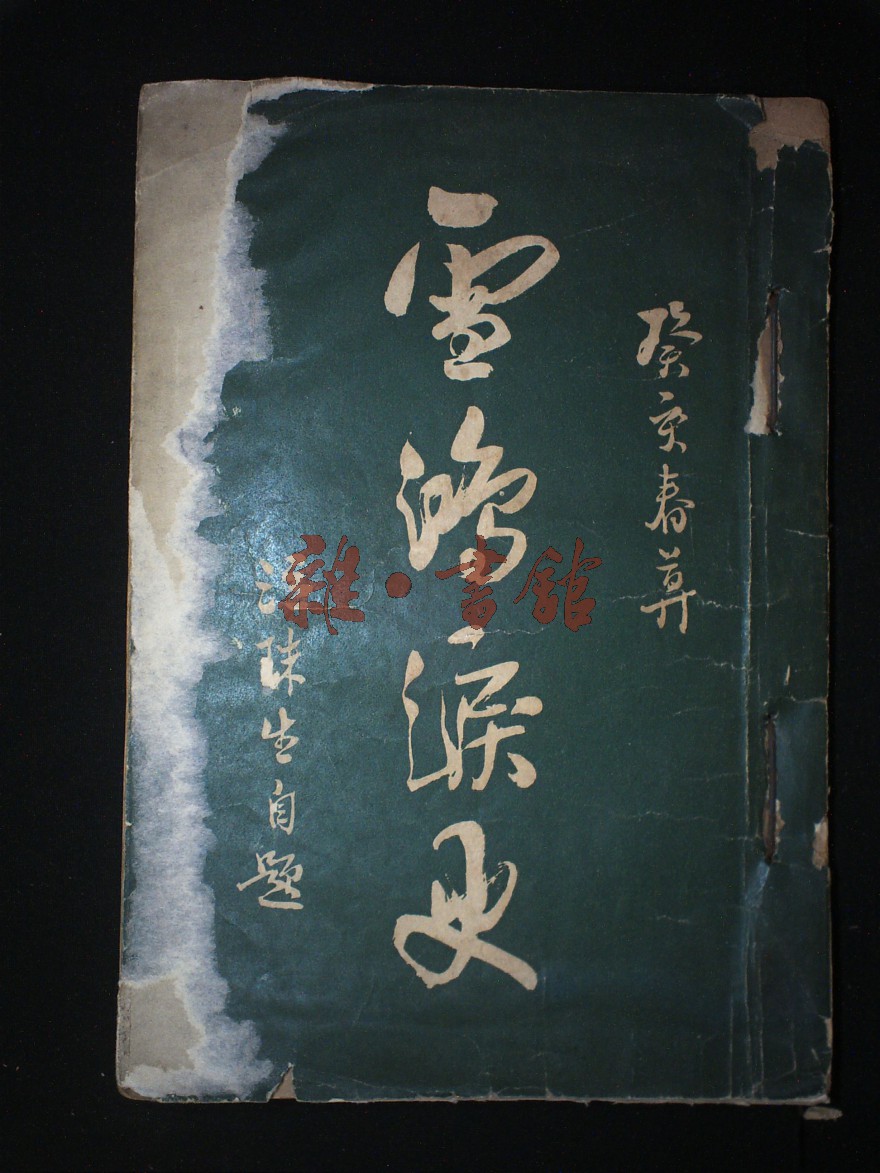 癸亥春莫
雪鴻淚史
泣珠生自題
雜·書館